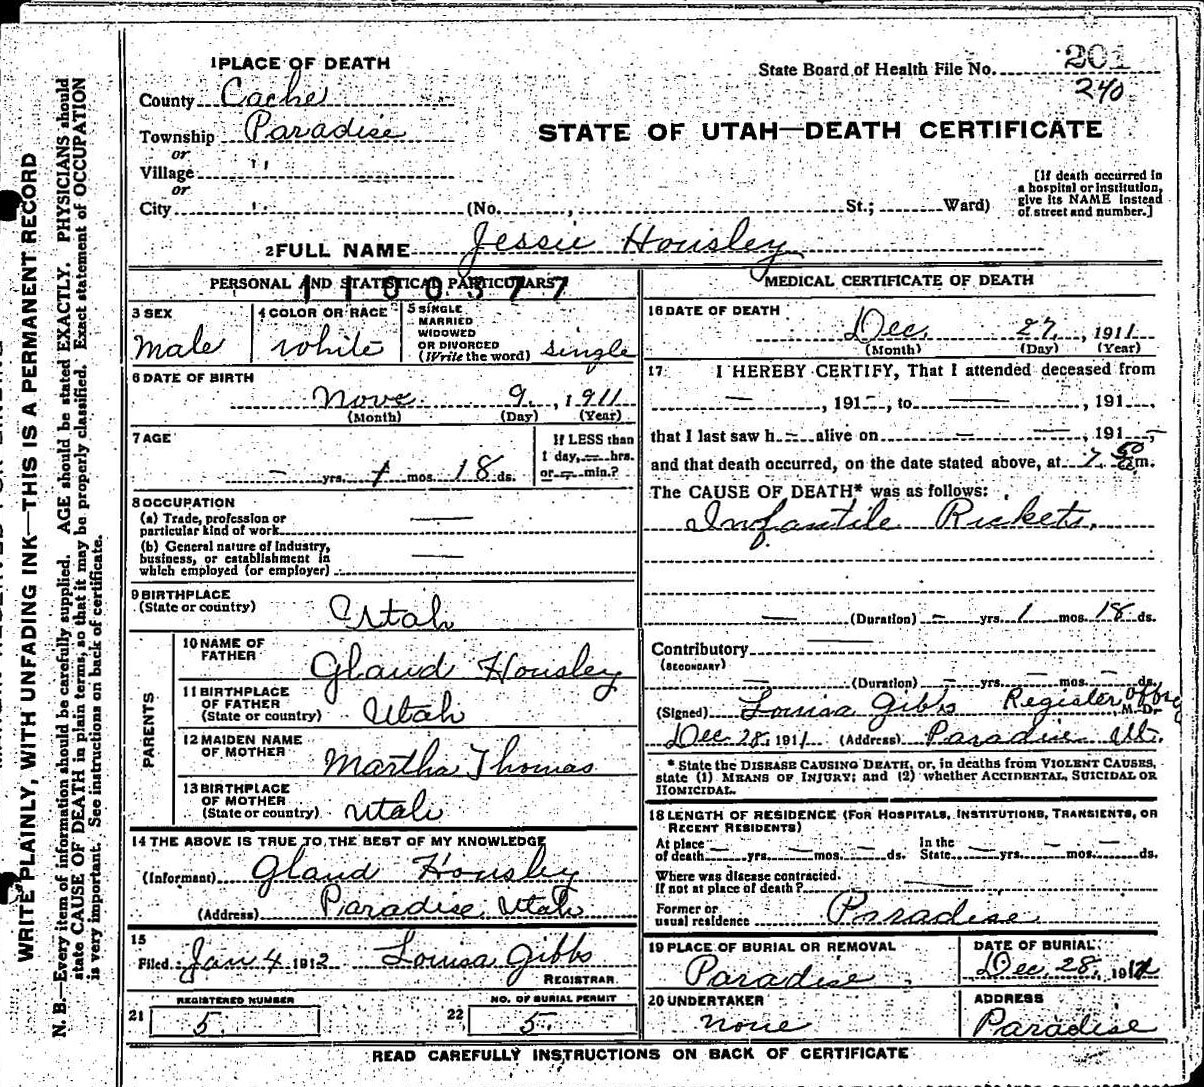 1 PLACE OF DEATH
State Board of Health File No. 201
240
County Cache
Township Paradise
STATE OF UTAH—DEATH CERTIFICATE
or
Village " "
or
City " (No. , St.; Ward)
[If death occurred in
a hospital or institution,
give its NAME instead
of street and number.]
2 FULL NAME Jessie Housley
PERSONAL AND STATISTICAL PARTICULARS
1100377
3 SEX
Male
4 COLOR OR RACE
White
5 SINGLE
MARRIED
WIDOWED
OR DIVORCED
(Write the word) single
6 DATE OF BIRTH
Nove. 9, 1911
(Month) (Day) (Year)
7 AGE
— yrs. 1 mos. 18 ds.
If LESS than
1 day, — hrs.
or — min.?
8 OCCUPATION
(a) Trade, profession or
particular kind of work —
(b) General nature of Industry,
business, or establishment in
which employed (or employer) —
9 BIRTHPLACE
(State or country) Utah
PARENTS
10 NAME OF
FATHER Glaud Housley
11 BIRTHPLACE
OF FATHER
(State or country) Utah
12 MAIDEN NAME
OF MOTHER Martha Thomas
13 BIRTHPLACE
OF MOTHER
(State or country) Utah
14 THE ABOVE IS TRUE TO THE BEST OF MY KNOWLEDGE
(Informant) Glaud Housley
(Address) Paradise Utah
15
Filed Jan 4 1912 Louisa Gibbs
REGISTRAR
REGISTERED NUMBER
21 5.
NO. OF BURIAL PERMIT
22 5.
MEDICAL CERTIFICATE OF DEATH
16 DATE OF DEATH
Dec. 27, 1911
(Month) (Day) (Year)
17 I HEREBY CERTIFY, That I attended deceased from
— , 191—, to — , 191
that I last saw h — alive on — — , 191 —
and that death occurred, on the date stated above, at 7. m.
The CAUSE OF DEATH* was as follows:
Infantile Rickets.
— (Duration) — yrs. 1 mos. 18 ds.
Contributory —
(SECONDARY)
— (Duration) — yrs. — mos. — ds.
(Signed) Louisa Gibbs Register M. D.
Dec 28, 1911 (Address) Paradise Ut.
* State the DISEASE CAUSING DEATH, or, in deaths from VIOLENT CAUSES,
state (1) MEANS OF INJURY; and (2) whether ACCIDENTAL, SUICIDAL OR
HOMICIDAL.
18 LENGTH OF RESIDENCE (FOR HOSPITALS, INSTITUTIONS, TRANSIENTS, OR
RECENT RESIDENTS)
At place
of death — yrs. — mos. — ds.
In the
State — yrs. — mos. — ds.
Where was disease contracted.
If not at place of death? —
Former or
usual residence Paradise
19 PLACE OF BURIAL OR REMOVAL
Paradise
DATE OF BURIAL
Dec. 28, 1911
20 UNDERTAKER
none
ADDRESS
Paradise
READ CAREFULLY INSTRUCTIONS ON BACK OF CERTIFICATE
WRITE PLAINLY, WITH UNFADING INK—THIS IS A PERMANENT RECORD
N. B.—Every item of information should be carefully supplied. AGE should be stated EXACTLY. PHYSICIANS should
state CAUSE OF DEATH in plain terms, so that it may be properly classified. Exact statement of OCCUPATION
is very important. See instructions on back of certificate.